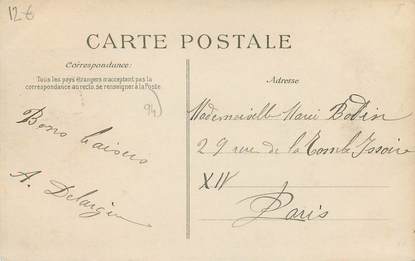 12€
CARTE POSTALE
Correspondance:
Tous les pays étrangers n'acceptent pas la
correspondance au recto. se renseigner à la Poste.
94
Bons baisers
A.
Adresse
Mademoiselle Marie Bodin
29 rue de la Tombe Issoire
XIV
Paris